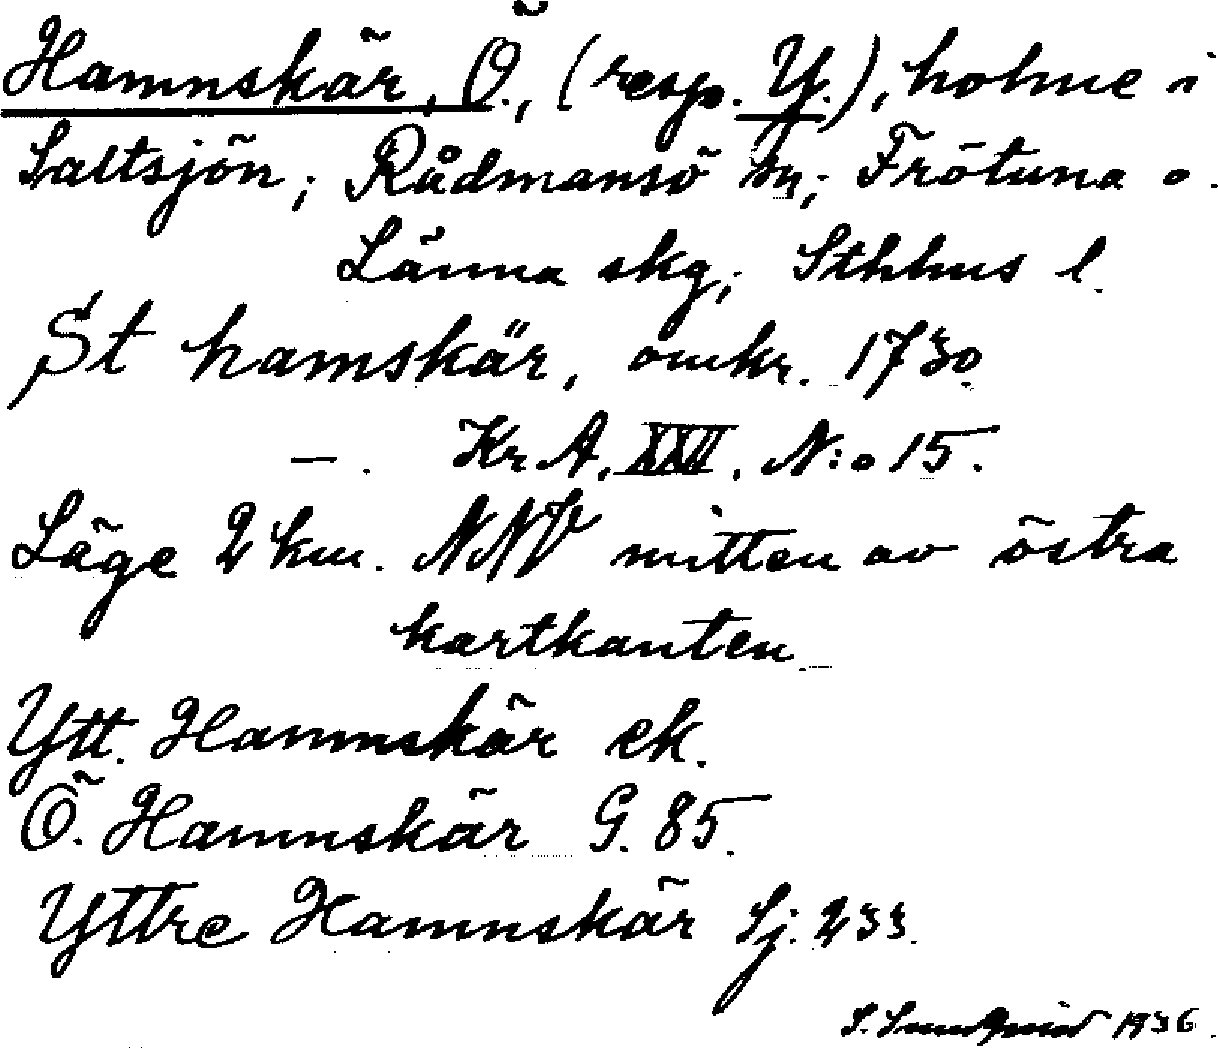 Hamnskär, Ö., (resp. Y.), holme i
Saltsjön; Rådmansö sn; Frötuna o.
Länna skg; Sthlms l.
St hamskär, omkr. 1730.
—. Kr A. XXII. N:o 15.
Läge 2 km. NNV mitten av östra
kartkanten
Ytt. Hamnskär ek.
Ö. Hamnskär G. 85.
Yttre Hamnskär Sj. 233.
S. Lundqvist 1936.